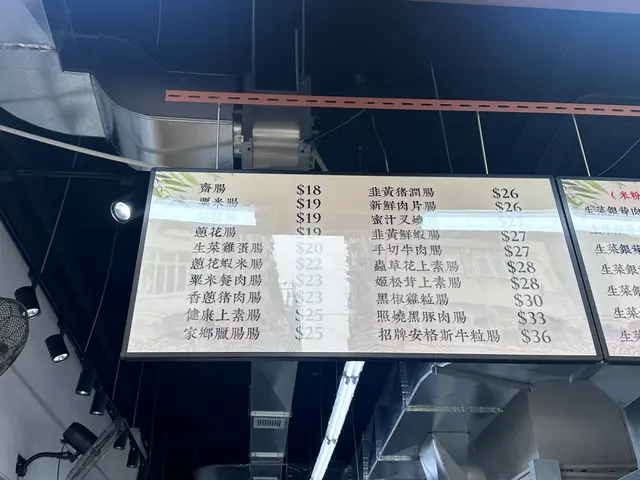 齋腸 $18
粟米腸 $19
腸 $19
蔥花腸 $19
生菜雞蛋腸 $20
蔥花蝦米腸 $22
粟米餐肉腸 $23
香蔥豬肉腸 $23
健康上素腸 $25
家鄉臘腸腸 $25
韭黃猪潤腸 $26
新鮮肉片腸 $26
蜜汁叉燒 $27
韭黃鮮蝦腸 $27
手切牛肉腸 $27
蟲草花上素腸 $28
姬松茸上素腸 $28
黑椒雞粒腸 $30
照燒黑豚肉腸 $33
招牌安格斯牛粒腸 $36
(米粉
生菜銀芽肉
生菜銀芽
生菜銀
生菜銀
生菜
生菜
生